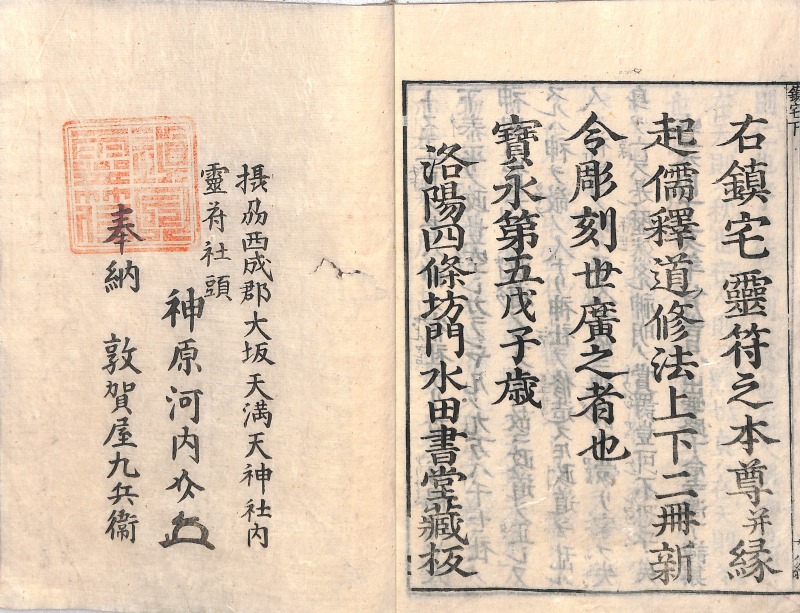 右鎮宅靈符之本尊并縁
起儒釋道修法上下二冊新
令彫刻世廣之者也
寶永第五戊子歳
洛陽四條坊門水田書堂藏板
鎮宅下
摂刕西成郡大坂天満天神社内
靈符社頭
神原河内介
奉納 敦賀屋九兵衞